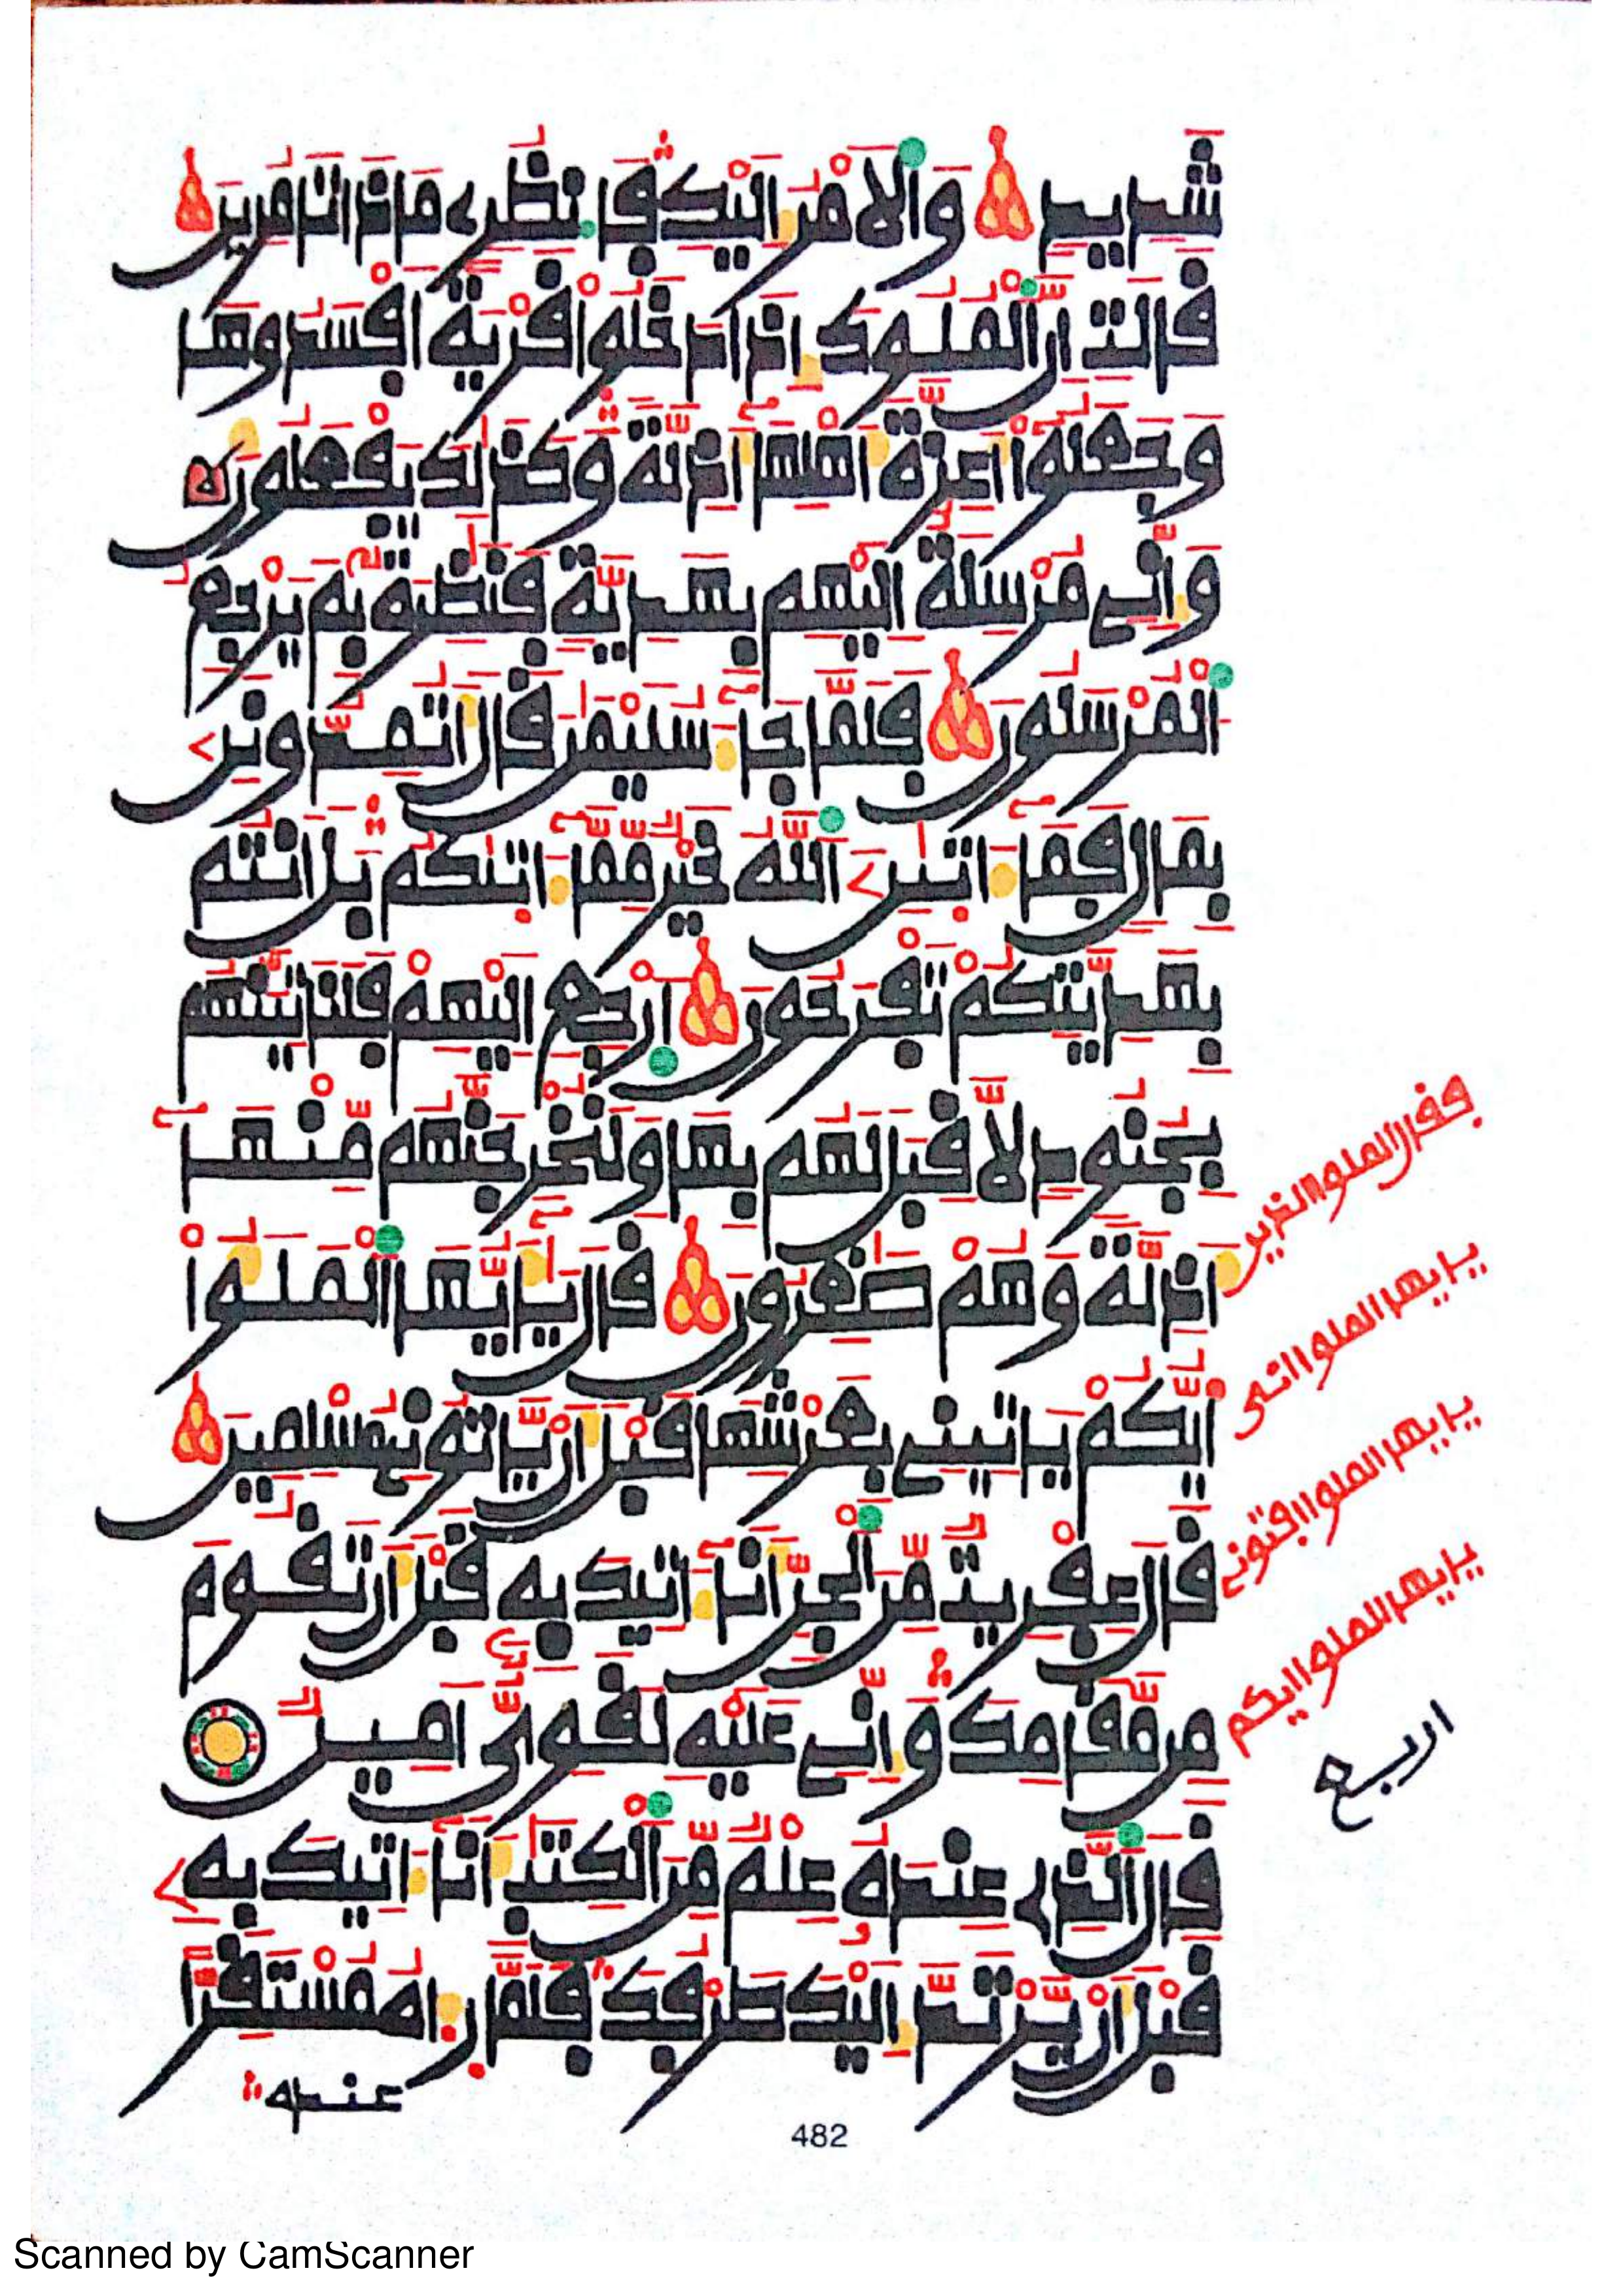 شديد والامر اليك فانظري ماذا تامرين
قالت ان الملوك اذا دخلوا قرية افسدوها
وجعلوا اعزة اهلها اذلة وكذلك يفعلون
واني مرسلة اليهم بهدية فنظرة بم يرجع
المرسلون فلما جا سليمن قال اتمدونن
بمال فما اتين الله خير مما اتيكم بل انتم
بهديتكم تفرحون ارجع اليهم فلناتينهم
بجنود لا قبل لهم بها ولنخرجنهم منها
اذلة وهم صغرون قال يايها الملوا
ايكم ياتيني بعرشها قبل ان ياتوني مسلمين
قال عفريت من الجن انا اتيك به قبل ان تقوم
من مقامك واني عليه لقوي امين
قال الذي عنده علم من الكتب انا اتيك به
قبل ان يرتد اليك طرفك فلما راه مستقرا
عنده
482
فقال الملوا الذين
يايها الملوا اني
يايها الملوا افتوني
يايها الملوا ايكم
اربع
Scanned by CamScanner